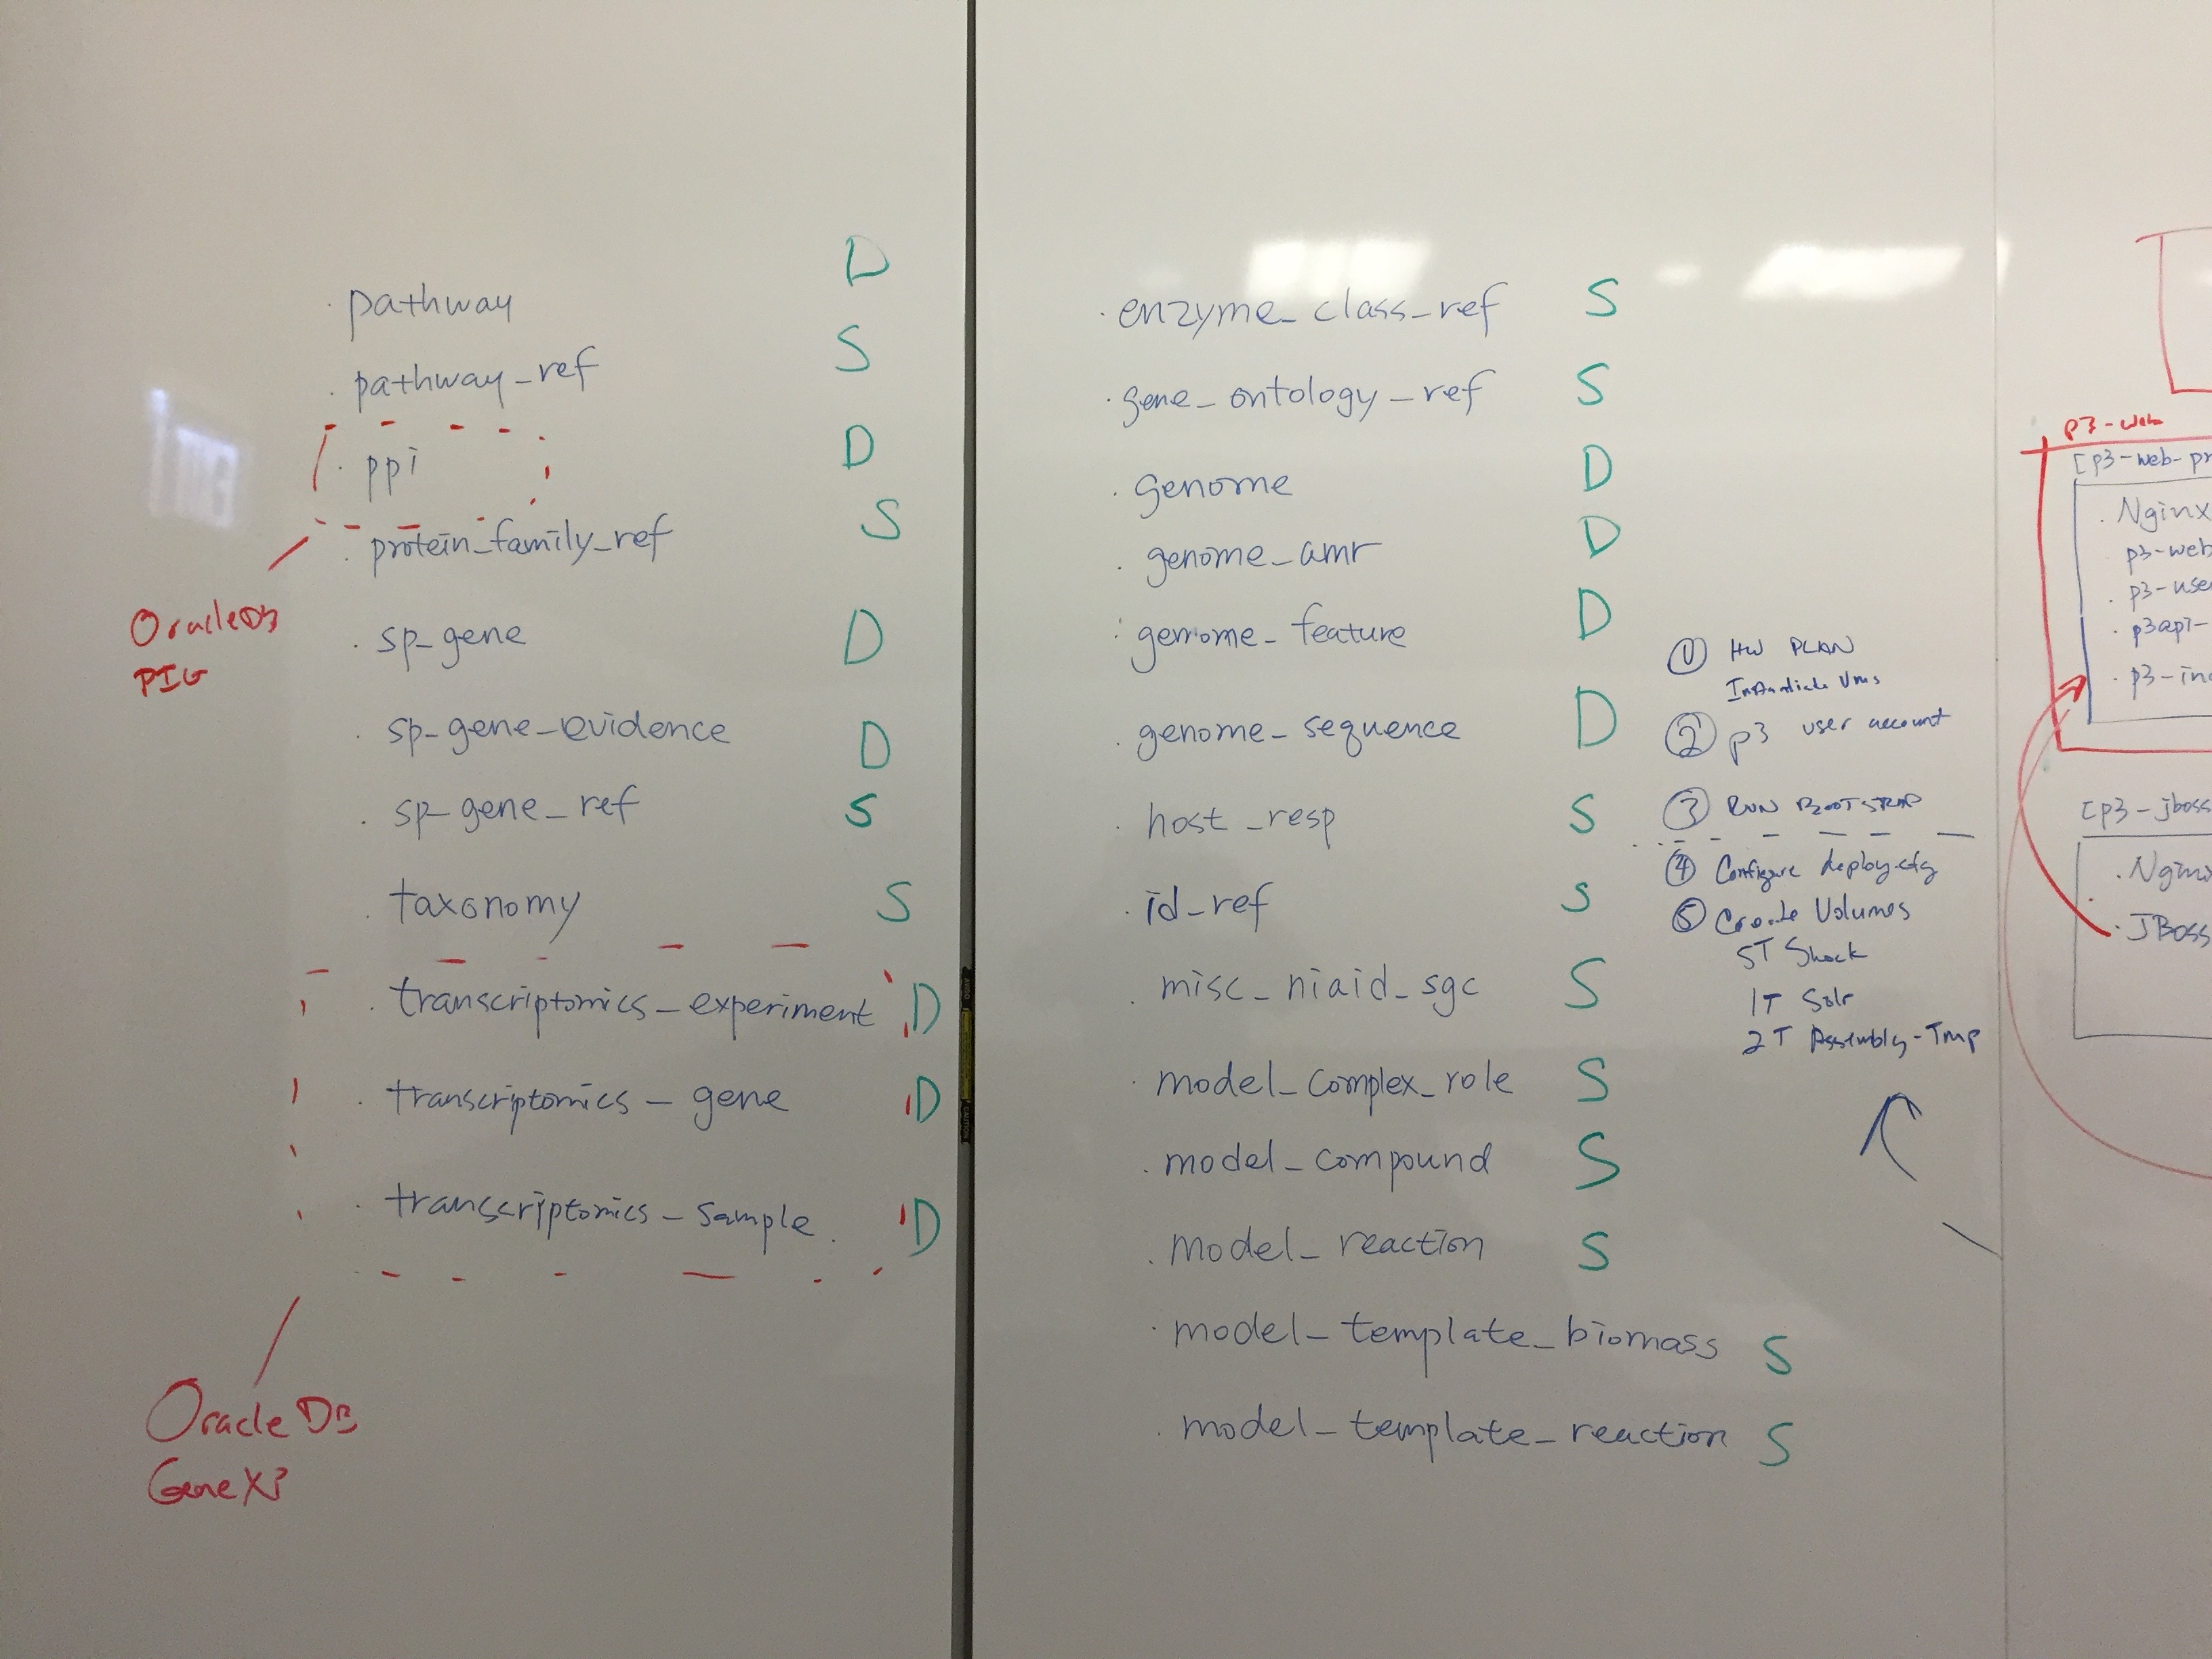 · pathway D
· pathway_ref S
· ppi D
· protein_family_ref S
OracleDB
PIG
· sp_gene D
· sp_gene_evidence D
· sp_gene_ref S
· taxonomy S
· transcriptomics_experiment D
· transcriptomics_gene D
· transcriptomics_sample D
Oracle DB
GeneXP
· enzyme_class_ref S
· gene_ontology_ref S
· genome D
· genome_amr D
· genome_feature D
· genome_sequence D
· host_resp S
· id_ref S
· misc_niaid_sgc S
· model_complex_role S
· model_compound S
· model_reaction S
· model_template_biomass S
· model_template_reaction S
① HW PLAN
Instantiate Vms
② p3 user account
③ RUN BOOTSTRAP
④ Configure deploy.cfg
⑤ Create Volumes
5T Shock
1T Solr
2T Assembly-Tmp
p3-web
[p3-web-pr
· Nginx
p3-web
· p3-use
· p3api-
· p3-inc
[p3-jboss
· Nginx
· JBoss